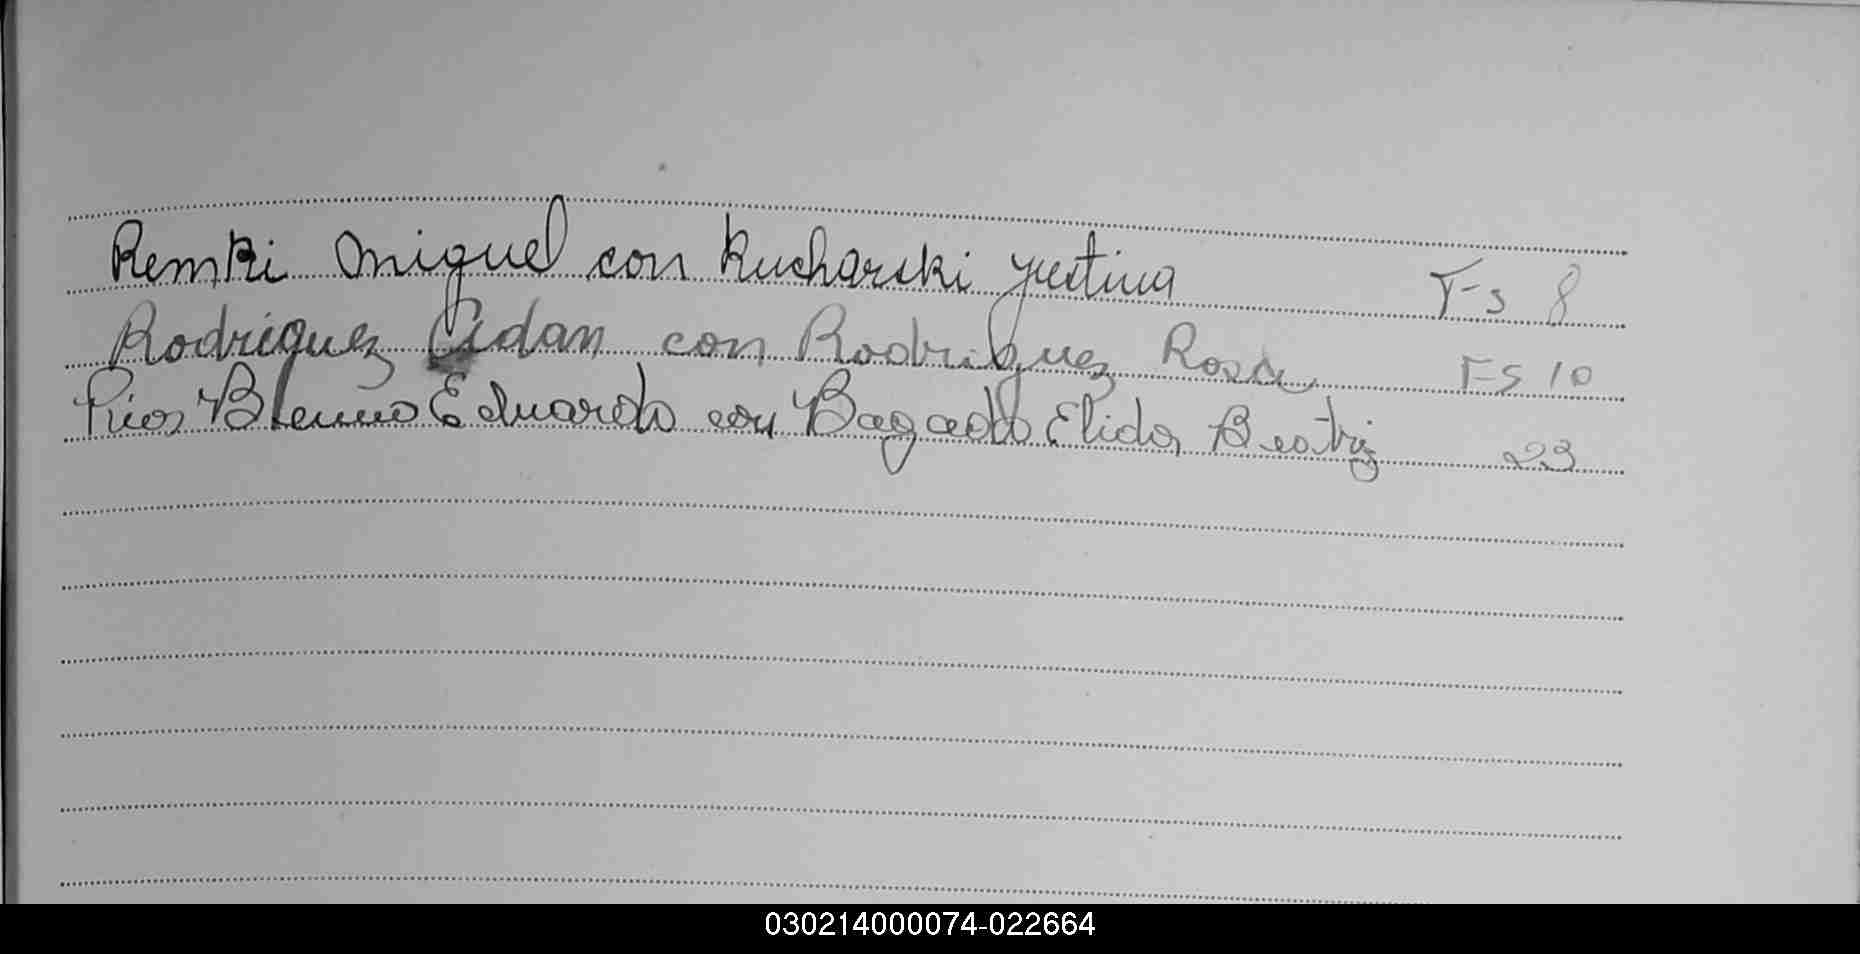 Remki Miguel con Kucharski Justina Fs 8
Rodriguez Adan con Rodriguez Rosa FS 10
Rios Eduardo con Elida Beatriz 23
030214000074-022664